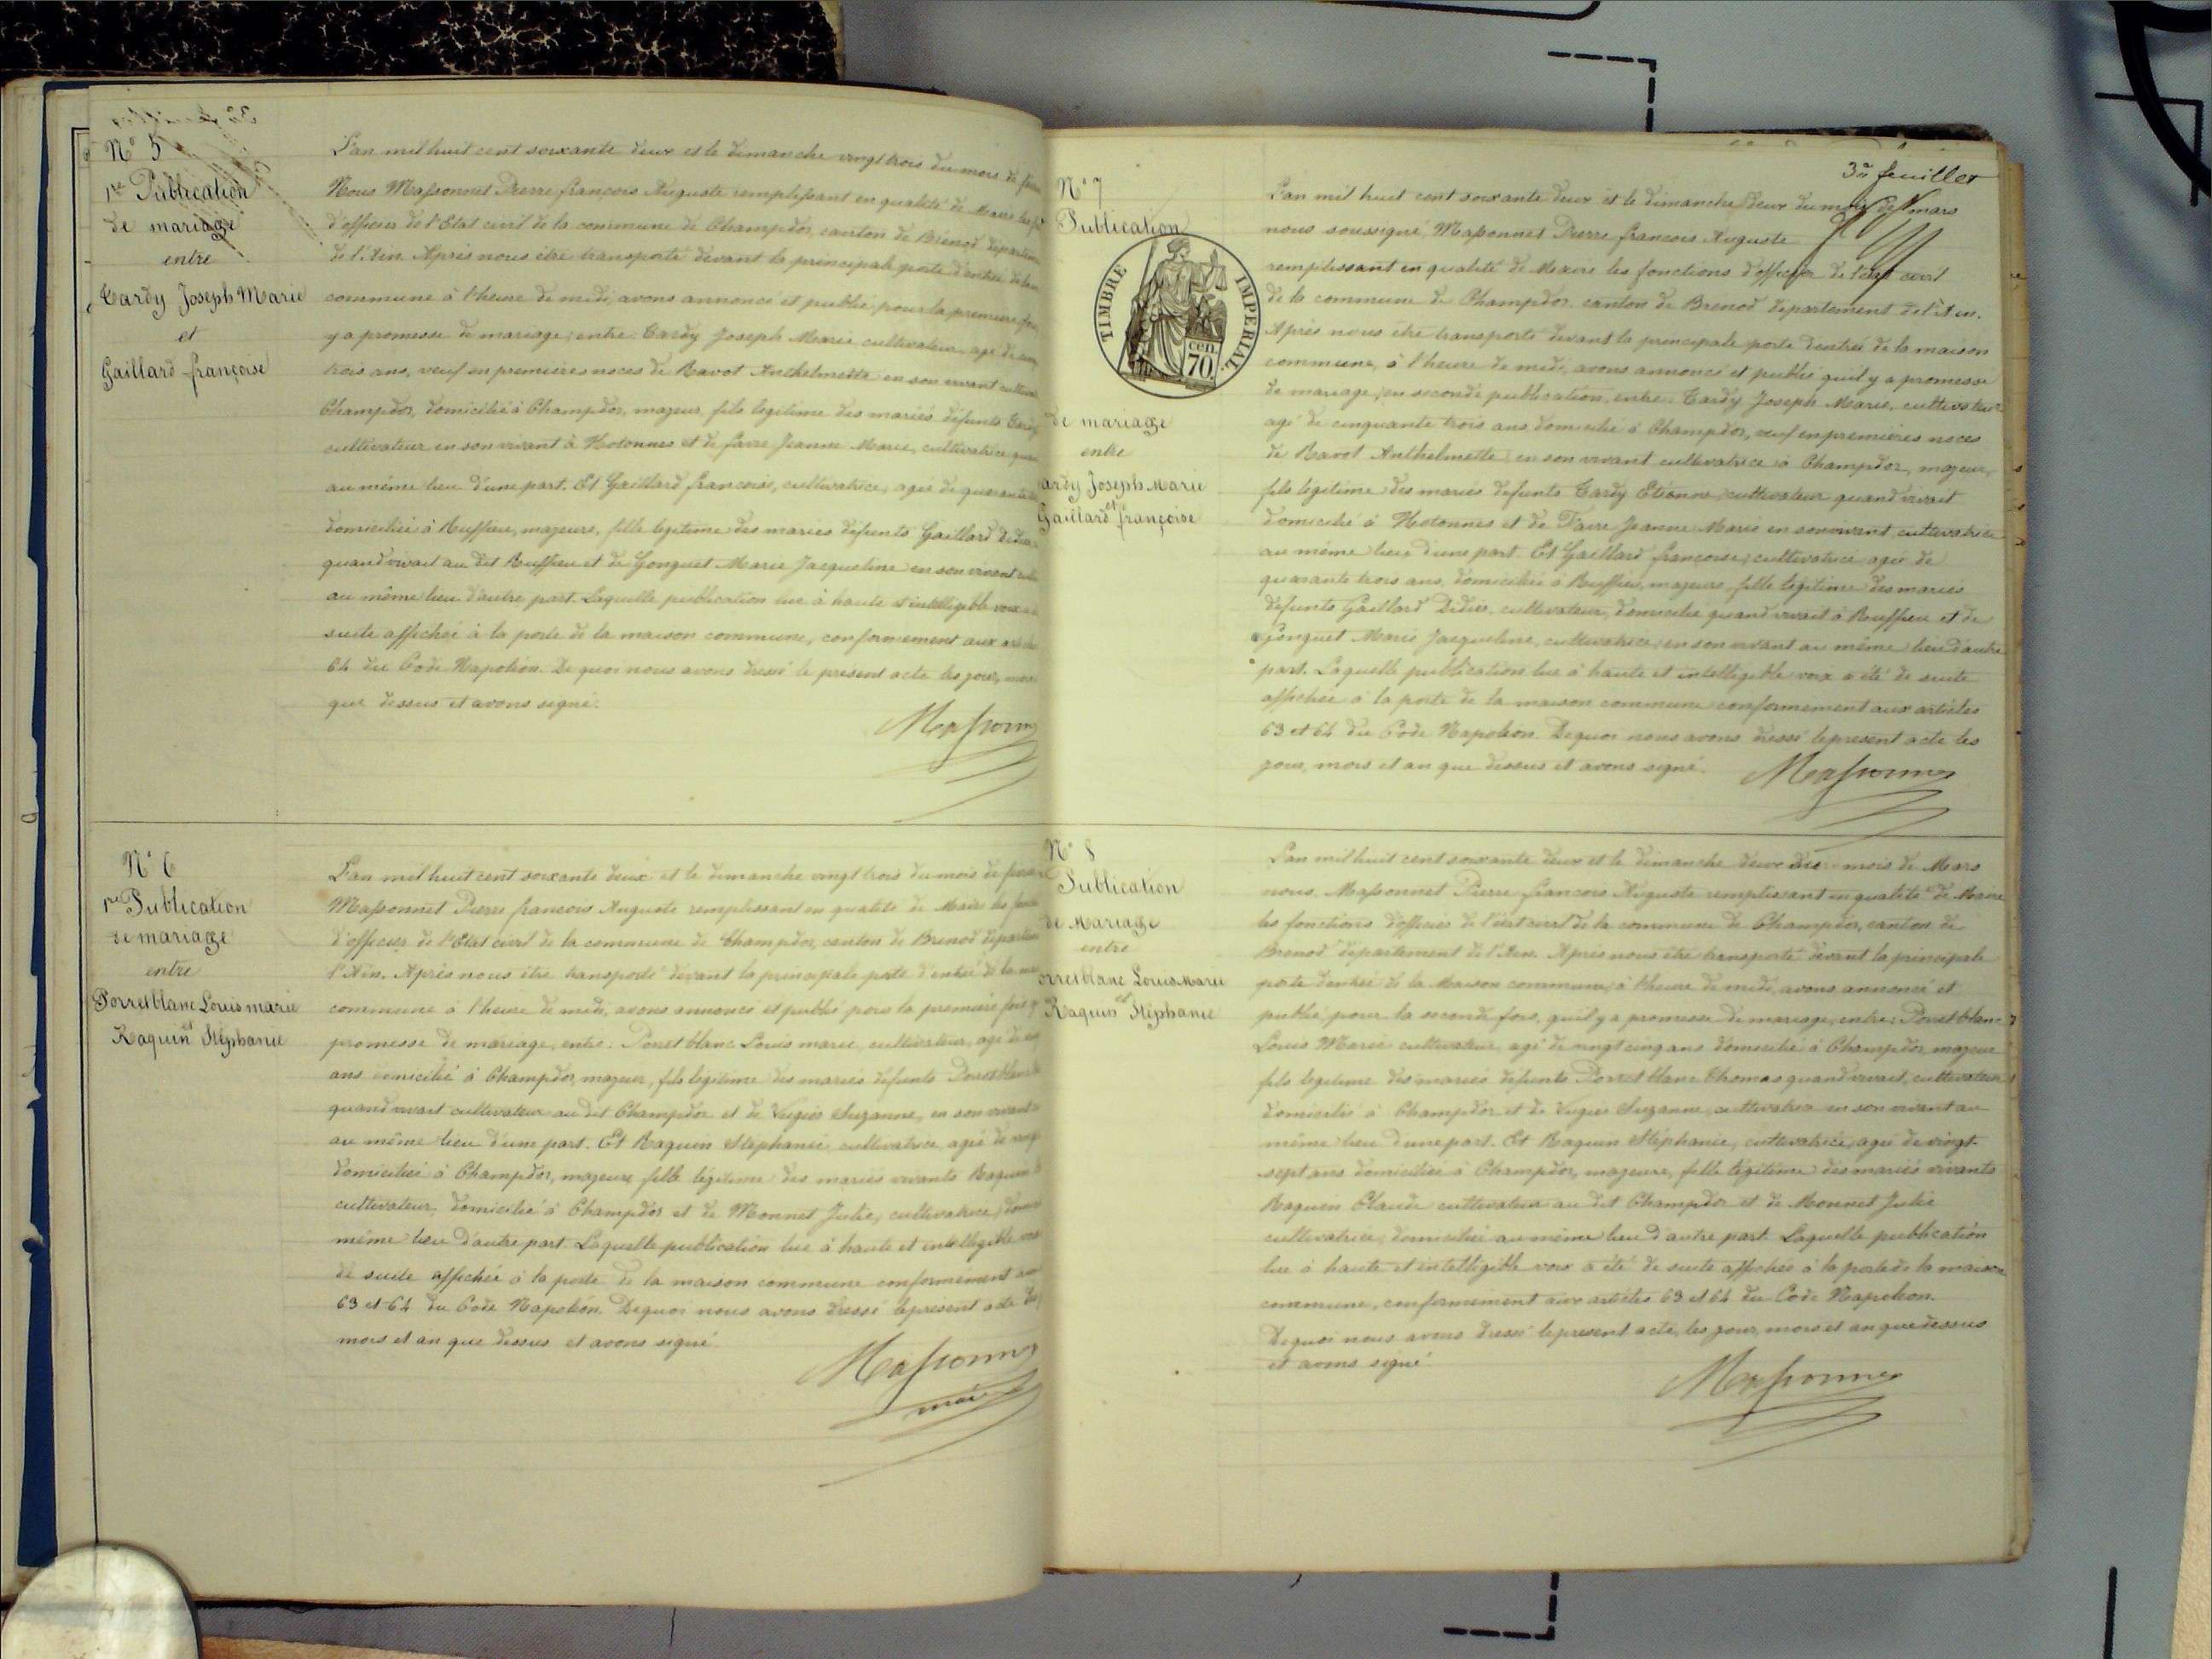 N° 5
1re Publication
de mariage
entre
Tardy Joseph Marie
et
Gaillard françoise
L'an mil huit cent soixante deux et le dimanche vingt trois du mois de
Nous Massonnet Pierre françois Auguste remplissant en qualité de Maire les
d'officier de l'Etat civil de la commune de Champdor, canton de Brénod départem
de l'Ain. Après nous être transporté devant la principale porte d'entrée de la
commune à l'heure de midi, avons annoncé et publié pour la première fois
y a promesse de mariage, entre Tardy Joseph Marie cultivateur, agé de
trois ans, veuf en premières noces de Ravot Anthelmette en son vivant
Champdor, domicilié à Champdor, majeur, fils légitime des mariés défunts
cultivateur en son vivant à Hotonnes et de favre Jeanne Marie, cultivatrice
au même lieu d'une part. Et Gaillard francoise, cultivatrice, agée de quarante
domiciliée à Ruffieu, majeure, fille légitime des mariés défunts Gaillard Didier
quand vivait au dit Ruffieu et de Gonguet Marie Jacqueline en son vivant
au même lieu d'autre part. Laquelle publication lue à haute et intelligible voix
suite affichée à la porte de la maison commune, conformement aux
64 du Code Napoléon. De quoi nous avons dressé le présent acte les jour, mois
que dessus et avons signé.
Massonn
N° 6
1re Publication
de mariage
entre
Porretblanc Louis marie
et
Raquin Stéphanie
L'an mil huit cent soixante deux et le dimanche vingt trois du mois de
Massonnet Pierre françois Auguste remplissant en qualité de Maire les
d'officier de l'Etat civil de la commune de Champdor, canton de Brenod départem
l'Ain. Après nous être transporté devant la principale porte d'entrée de la
commune à l'heure de midi, avons annoncé et publié pour la première fois
promesse de mariage, entre. Porret blanc Louis marie, cultivateur, agé de
ans domicilié à Champdor, majeur, fils légitime des mariés défunts Porret blanc
quand vivait cultivateur au dit Champdor et de Suzanne, en son vivant
au même lieu d'une part. Et Raquin Stéphanie cultivatrice agée de
domiciliée à Champdor, majeure, fille légitime des mariés vivants Raquin
cultivateur, domicilié à Champdor et de Monnet Julie, cultivatrice,
même lieu d'autre part. Laquelle publication lue à haute et intelligible
de suite affichée à la porte de la maison commune conformement
63 et 64 du Code Napoléon. Dequoi nous avons dressé le présent acte
mois et an que dessus et avons signé.
Massonn
N° 7
Publication
TIMBRE IMPERIAL
cen.
70.
de mariage
entre
ardy Joseph Marie
et
Gaillard françoise
3e feuillet
L'an mil huit cent soixante deux et le dimanche deux du mois de mars
nous soussigné, Massonnet Pierre francois Auguste
remplissant en qualité de Maire les fonctions d'officier de l'état civil
de la commune de Champdor. canton de Brenod département de l'Ain.
Après nous être transporté devant la principale porte d'entrée de la maison
commune, à l'heure de midi, avons annoncé et publié qu'il y a promesse
de mariage, en seconde publication, entre Tardy Joseph Marie, cultivateur
agé de cinquante trois ans domicilié à Champdor, veuf en premières noces
de Ravot Anthelmette en son vivant cultivatrice à Champdor, majeur,
fils légitime des mariés défunts Tardy Etienne, cultivateur quand vivait
domicilié à Hotonnes et de Favre Jeanne Marie en son vivant cultivatrice
au même lieu d'une part. Et Gaillard françoise, cultivatrice agée de
quarante trois ans, domiciliée à Ruffieu, majeure, fille légitime des mariés
défunts Gaillard Didier, cultivateur, domicilié quand vivait à Ruffieu et de
Gonguet Marie Jacqueline, cultivatrice, en son vivant au même lieu d'autre
part. Laquelle publication lue à haute et intelligible voix a été de suite
affichée à la porte de la maison commune conformement aux articles
63 et 64 du Code Napoléon. Dequoi nous avons dressé le présent acte les
jour, mois et an que dessus et avons signé.
Massonnet
N° 8
Publication
de Mariage
entre
orretblanc Louis Marie
et
Raquin Stéphanie
L'an mil huit cent soixante deux et le dimanche deux mois de Mars
nous, Massonnet Pierre francois Auguste remplissant en qualité de Maire
les fonctions d'officier de l'état civil de la commune de Champdor, canton de
Brenod département de l'Ain. Après nous être transporté devant la principale
porte d'entrée de la Maison commune, à l'heure de midi, avons annoncé et
publié pour la seconde fois, qu'il y a promesse de mariage, entre; Porret blanc
Louis Marie cultivateur, agé de vingt cinq ans domicilié à Champdor, majeur
fils légitime des mariés défunts Porret blanc Thomas quand vivait, cultivateur
domicilié à Champdor et de Suzanne, cultivatrice en son vivant au
même lieu d'une part. Et Raquin Stéphanie, cultivatrice, agée de vingt-
sept ans domiciliée à Champdor, majeure, fille légitime des mariés vivants
Raquin Claude cultivateur au dit Champdor et de Monnet Julie
cultivatrice, domiciliée au même lieu d'autre part. Laquelle publication
lue à haute et intelligible voix a été de suite affichée à la porte de la maison
commune, conformement aux articles 63 et 64 du Code Napoléon.
Dequoi nous avons dressé le présent acte, les jour, mois et an que dessus
et avons signé.
Massonnet